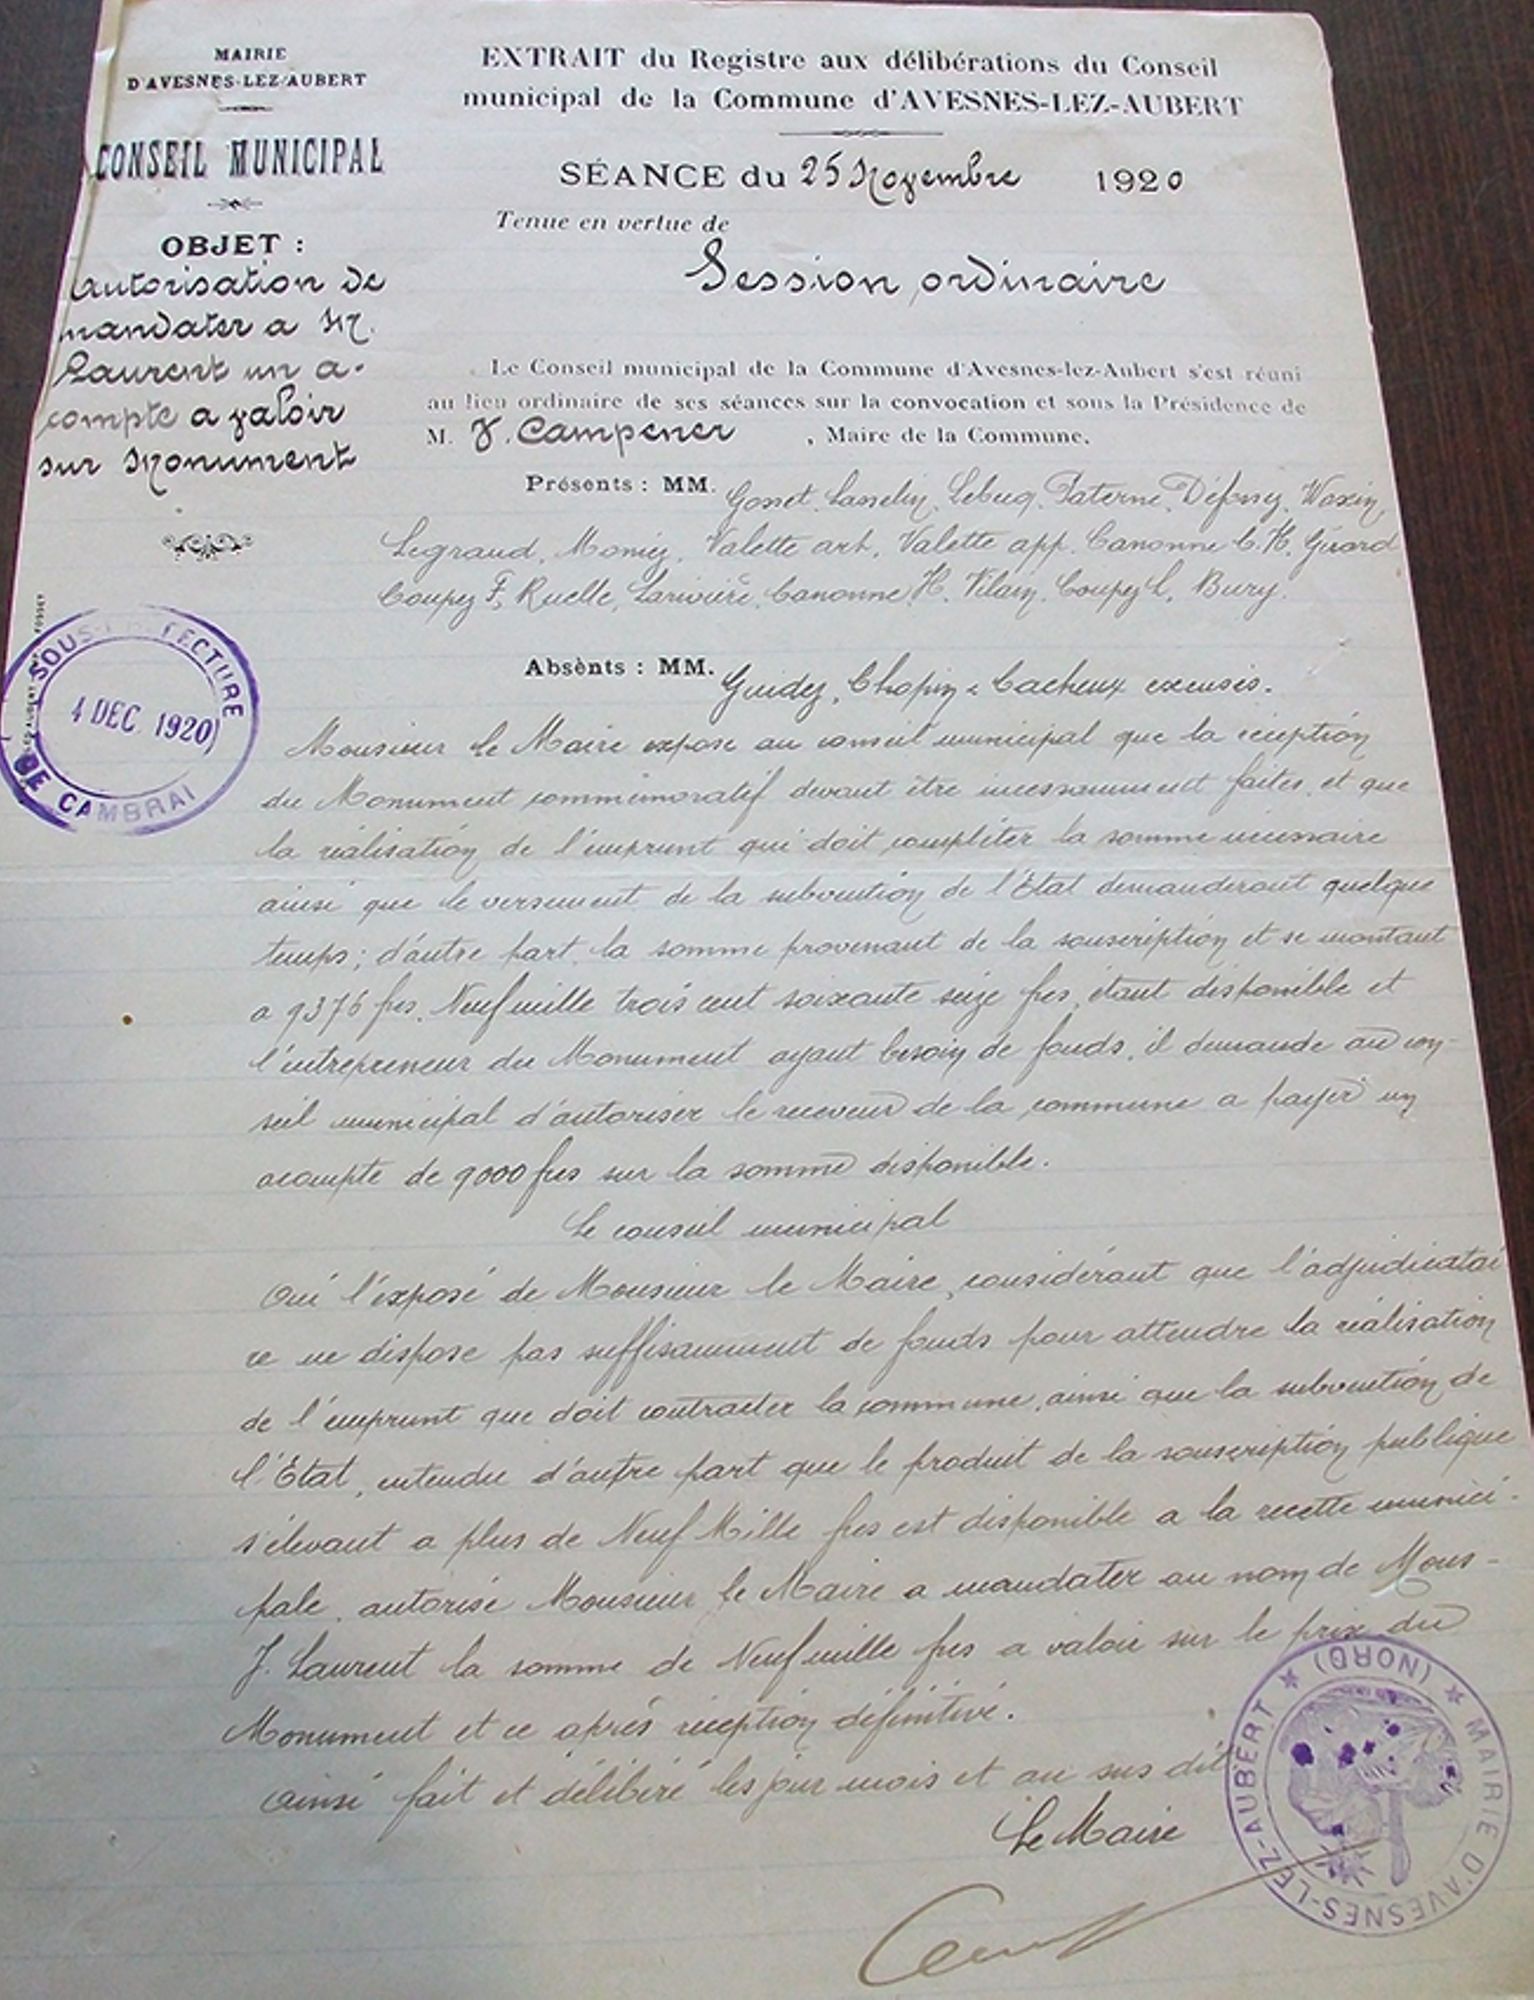 MAIRIE
D'AVESNES-LEZ-AUBERT
CONSEIL MUNICIPAL
OBJET :
Autorisation de
mandater a M.
Laurent un a-
compte a valoir
sur Monument
EXTRAIT du Registre aux délibérations du Conseil
municipal de la Commune d'AVESNES-LEZ-AUBERT
SÉANCE du 25 Novembre 1920
Tenue en vertue de
Session ordinaire
Le Conseil municipal de la Commune d'Avesnes-lez-Aubert s'est réuni
au lieu ordinaire de ses séances sur la convocation et sous la Présidence de
M. J. Campener , Maire de la Commune.
Présents : MM. Gosset, Lasselin, Lebucq, Paterne, Déforny, Waxin,
Legrand, Moniez, Valette art, Valette app. Canonne C. H. Girard
Coupez F, Ruelle, Larivière, Canonne H. Vilain, Coupez L, Bury.
Absènts : MM. Guidez, Chopin & Cacheux excusés.
Monsieur le Maire expose au conseil municipal que la réception
du Monument commémoratif devant être incessamment faites, et que
la réalisation de l'emprunt qui doit compléter la somme nécessaire
ainsi que le versement de la subvention de l'Etat demanderont quelque
temps ; d'autre part, la somme provenant de la souscription et se montant
a 9376 frs, Neuf mille trois cent soixante seize frs, étant disponible et
l'entrepreneur du Monument ayant besoin de fonds, il demande au con-
seil municipal d'autoriser le receveur de la commune a payer un
acompte de 9000 frs sur la somme disponible.
Le conseil municipal
Oui l'exposé de Monsieur le Maire, considérant que l'adjudicatai
re ne dispose pas suffisamment de fonds pour attendre la réalisation
de l'emprunt que doit contracter la commune, ainsi que la subvention de
l'Etat, entendu d'autre part que le produit de la souscription publique
s'élevant a plus de Neuf Mille frs est disponible a la recette munici-
pale, autorise Monsieur le Maire a mandater au nom de Mons-
J. Laurent la somme de Neuf mille frs a valoir sur le prix du
Monument et ce après réception définitive.
ainsi fait et délibéré les jour mois et an sus dit
Le Maire
SOUS-PRÉFECTURE
4 DEC 1920
DE CAMBRAI
MAIRIE D'AVESNES-LEZ-AUBERT (NORD)